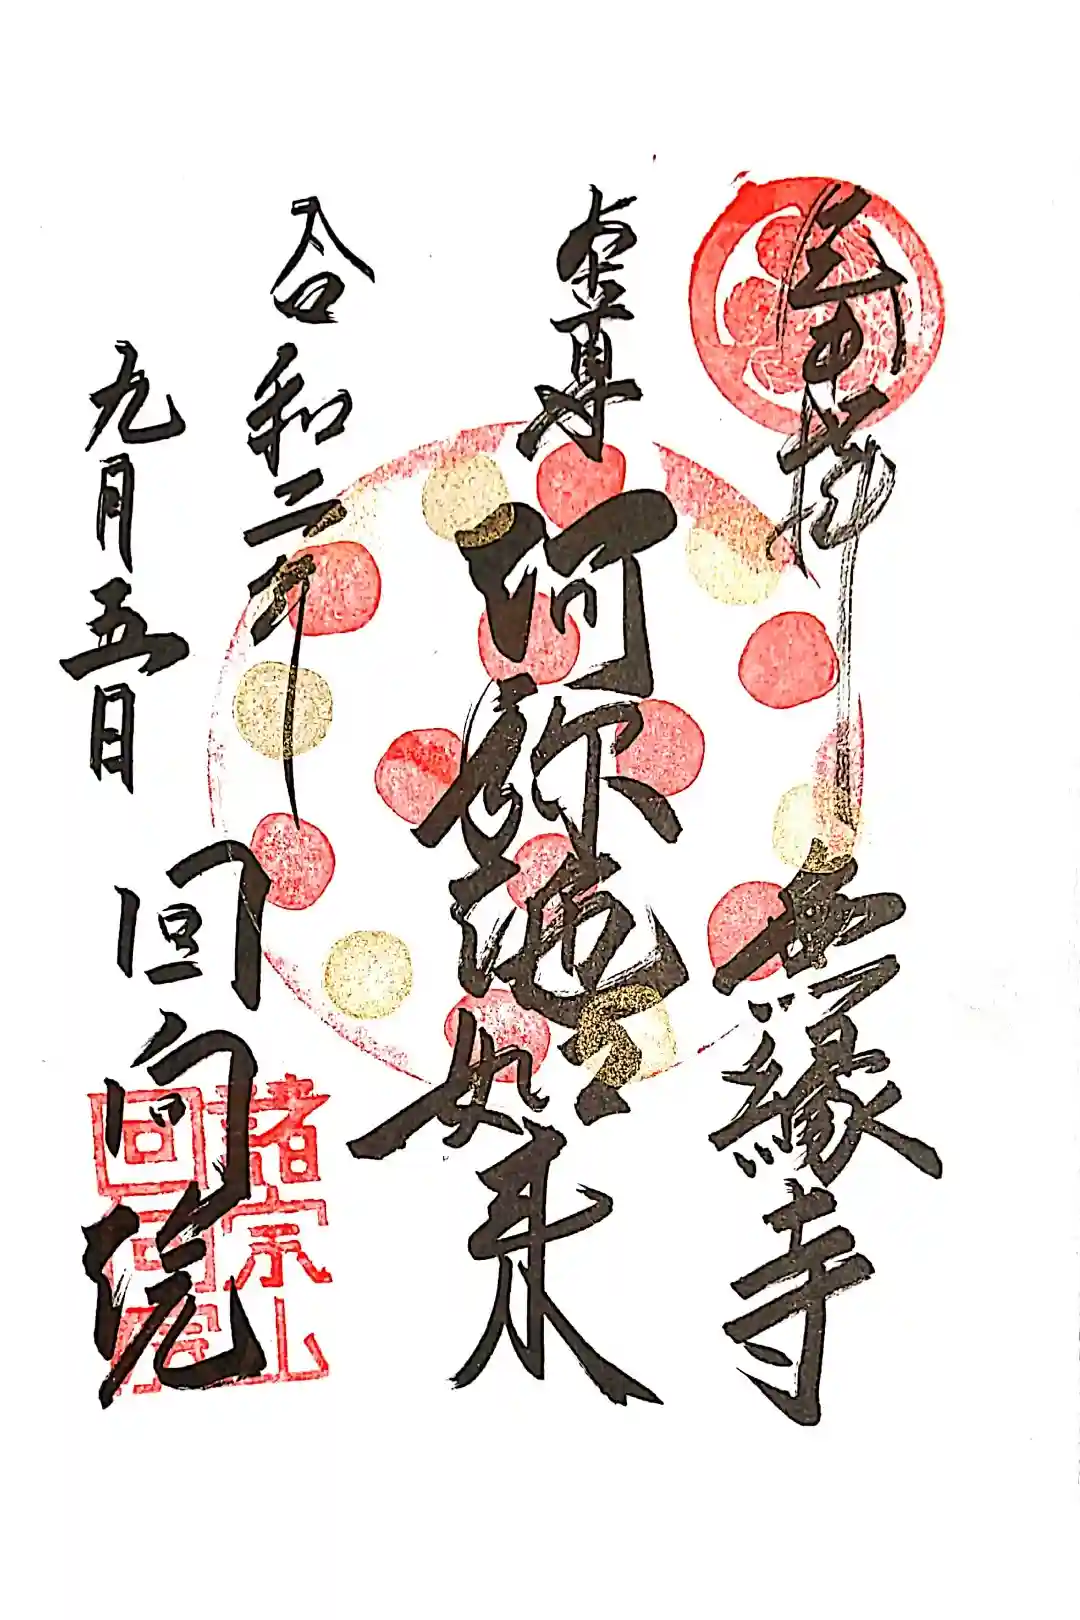 無縁寺
本尊 阿弥陀如来
令和二年
九月五日 回向院
諸宗山
回向院